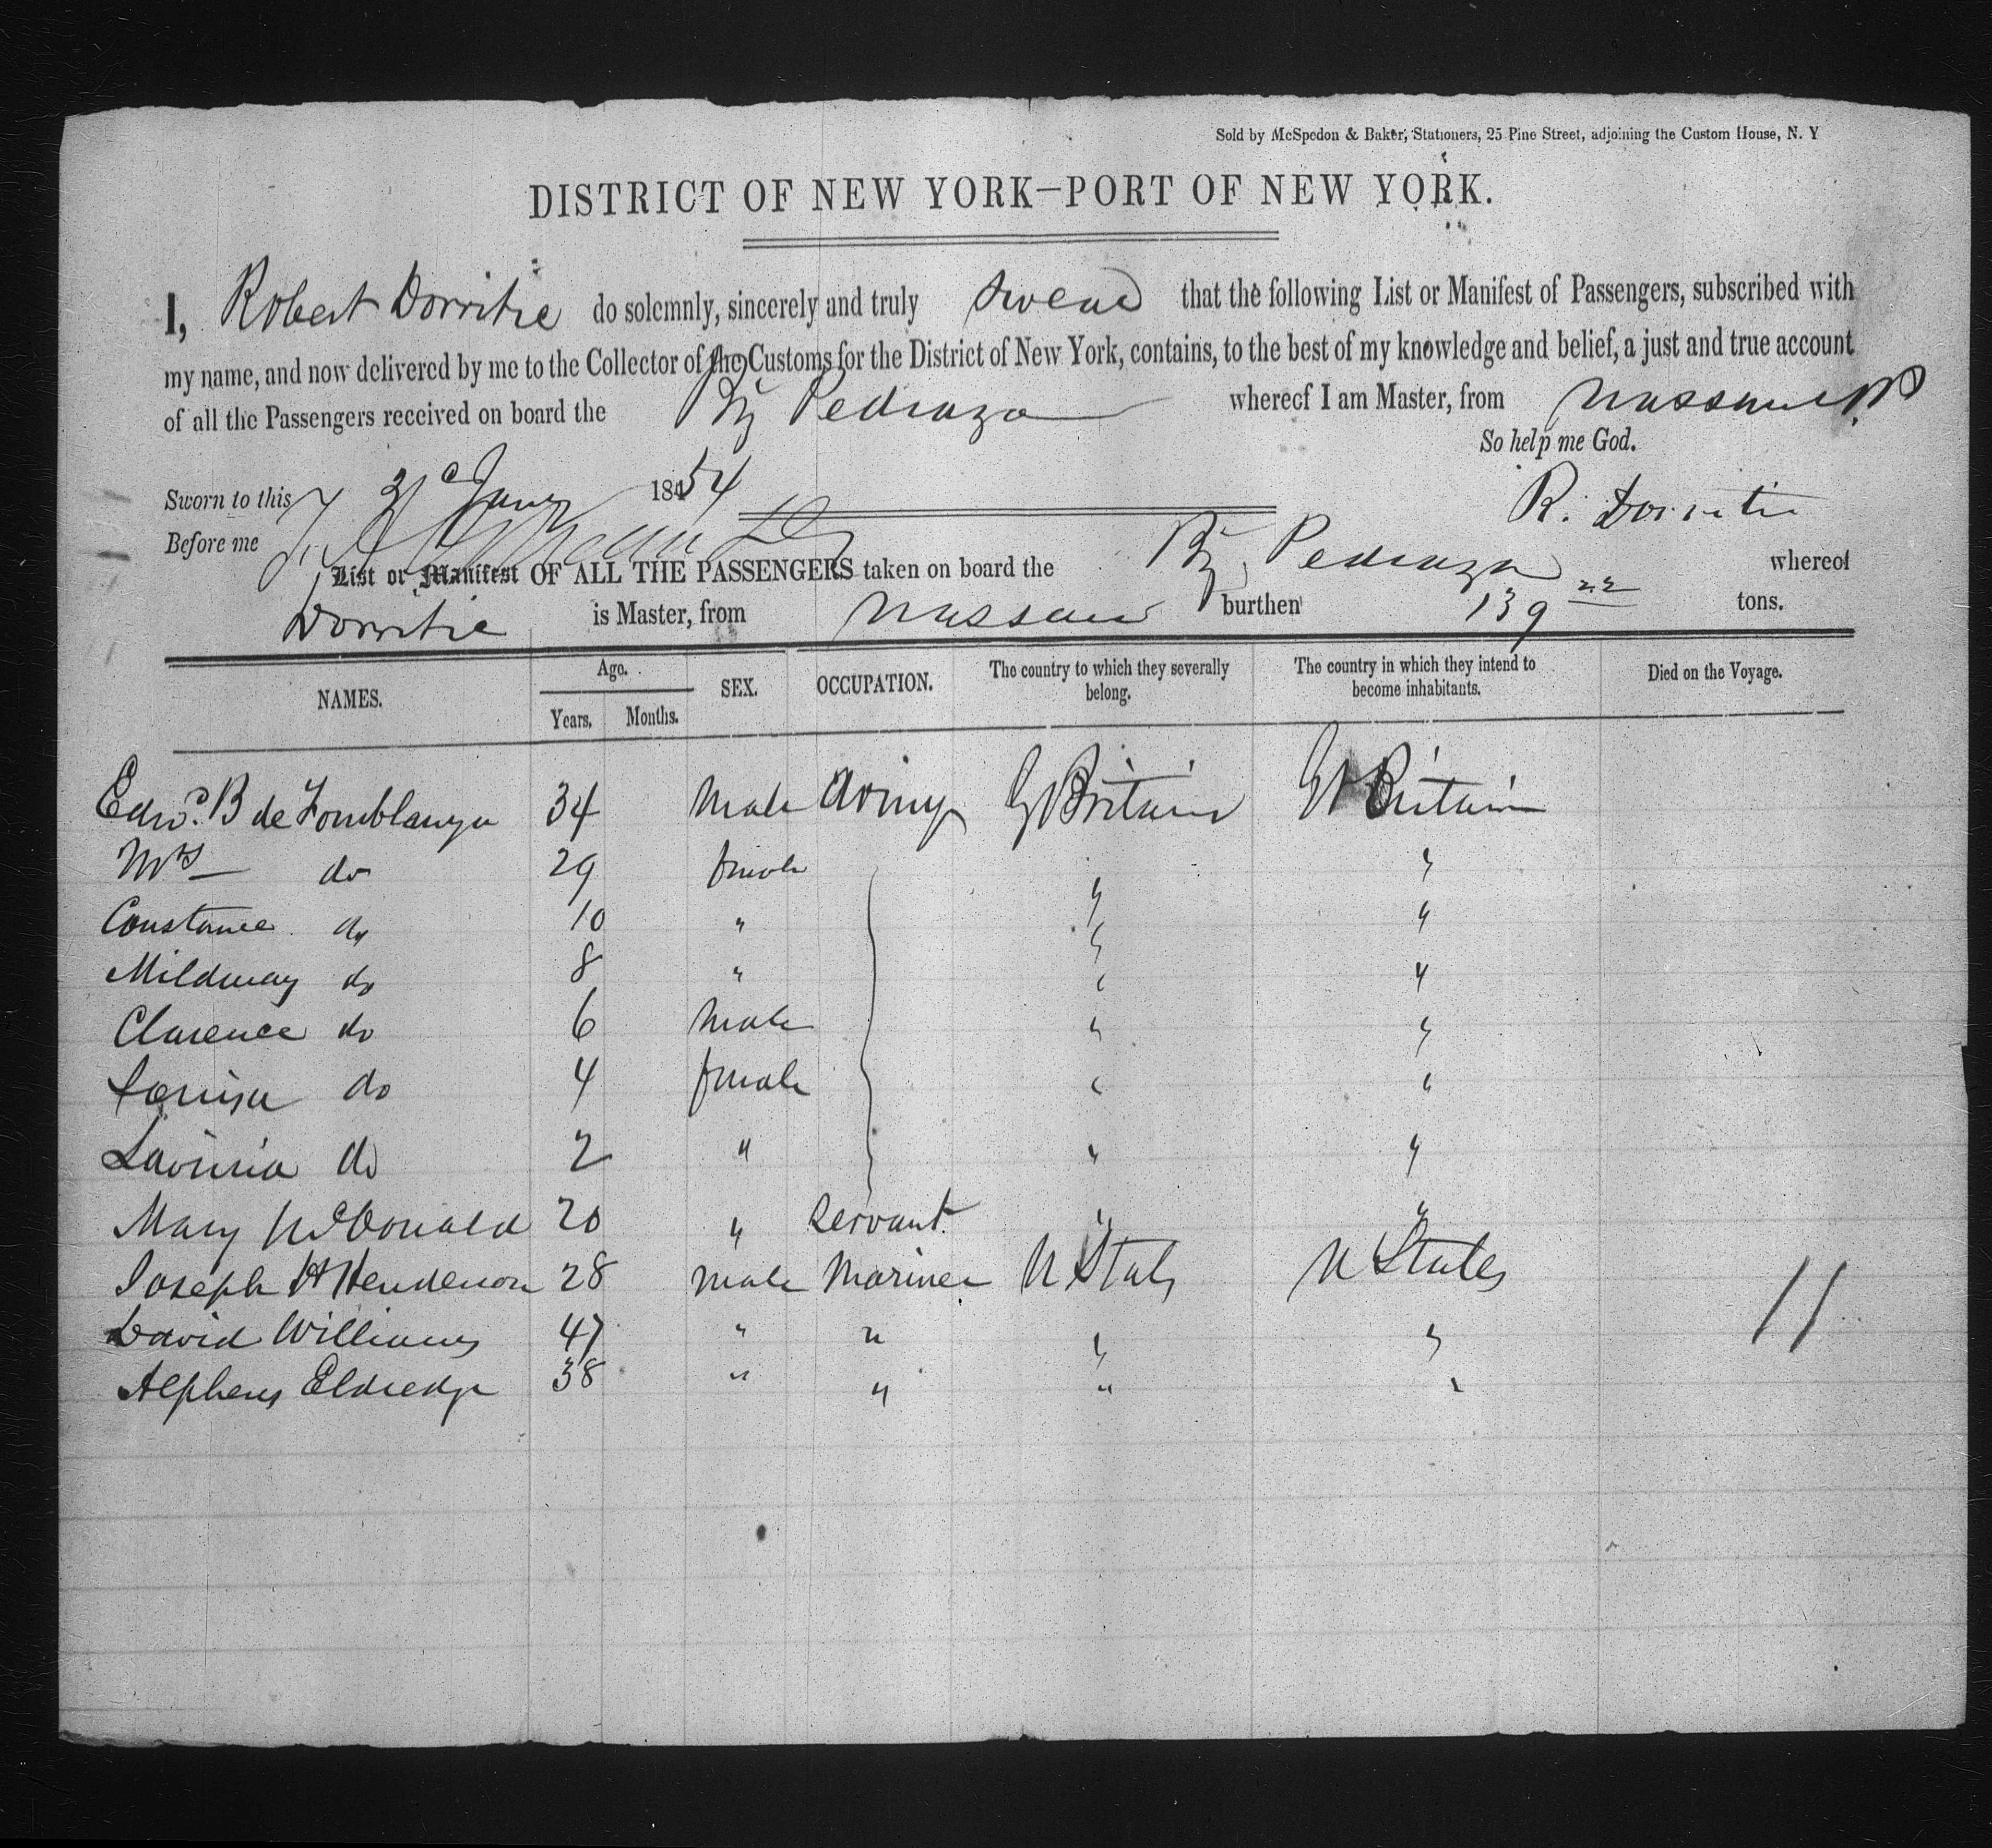 Sold by McSpedon & Baker, Stationers, 25 Pine Street, adjoining the Custom House, N. Y
DISTRICT OF NEW YORK—PORT OF NEW YORK.
I, Robert Dorritie do solemnly, sincerely and truly swear that the following List or Manifest of Passengers, subscribed with
my name, and now delivered by me to the Collector of the Customs for the District of New York, contains, to the best of my knowledge and belief, a just and true account
of all the Passengers received on board the Bg Pedraza whereof I am Master, from Nassau NP
So help me God.
Sworn to this 31 Jany 1854 R. Dorritie
Before me
List or Manifest OF ALL THE PASSENGERS taken on board the Bg Pedraza whereof
Dorritie is Master, from Nassau burthen 139 22 tons.
NAMES. Age. Years. Months. SEX. OCCUPATION. The country to which they severally belong. The country in which they intend to become inhabitants. Died on the Voyage.
Edwd. B de Fonblanque 34 Male Army Gt Britain Gt Britain
Mrs do 29 female " "
Constance do 10 " " "
Mildmay do 8 " " "
Clarence do 6 Male " "
Louisa do 4 female " "
Lavinia do 2 " " "
Mary McDonald 20 " Servant " "
Joseph H Henderson 28 Male Mariner U States U States 11
David Williams 47 " " " "
Alpheus Eldredge 38 " " " "